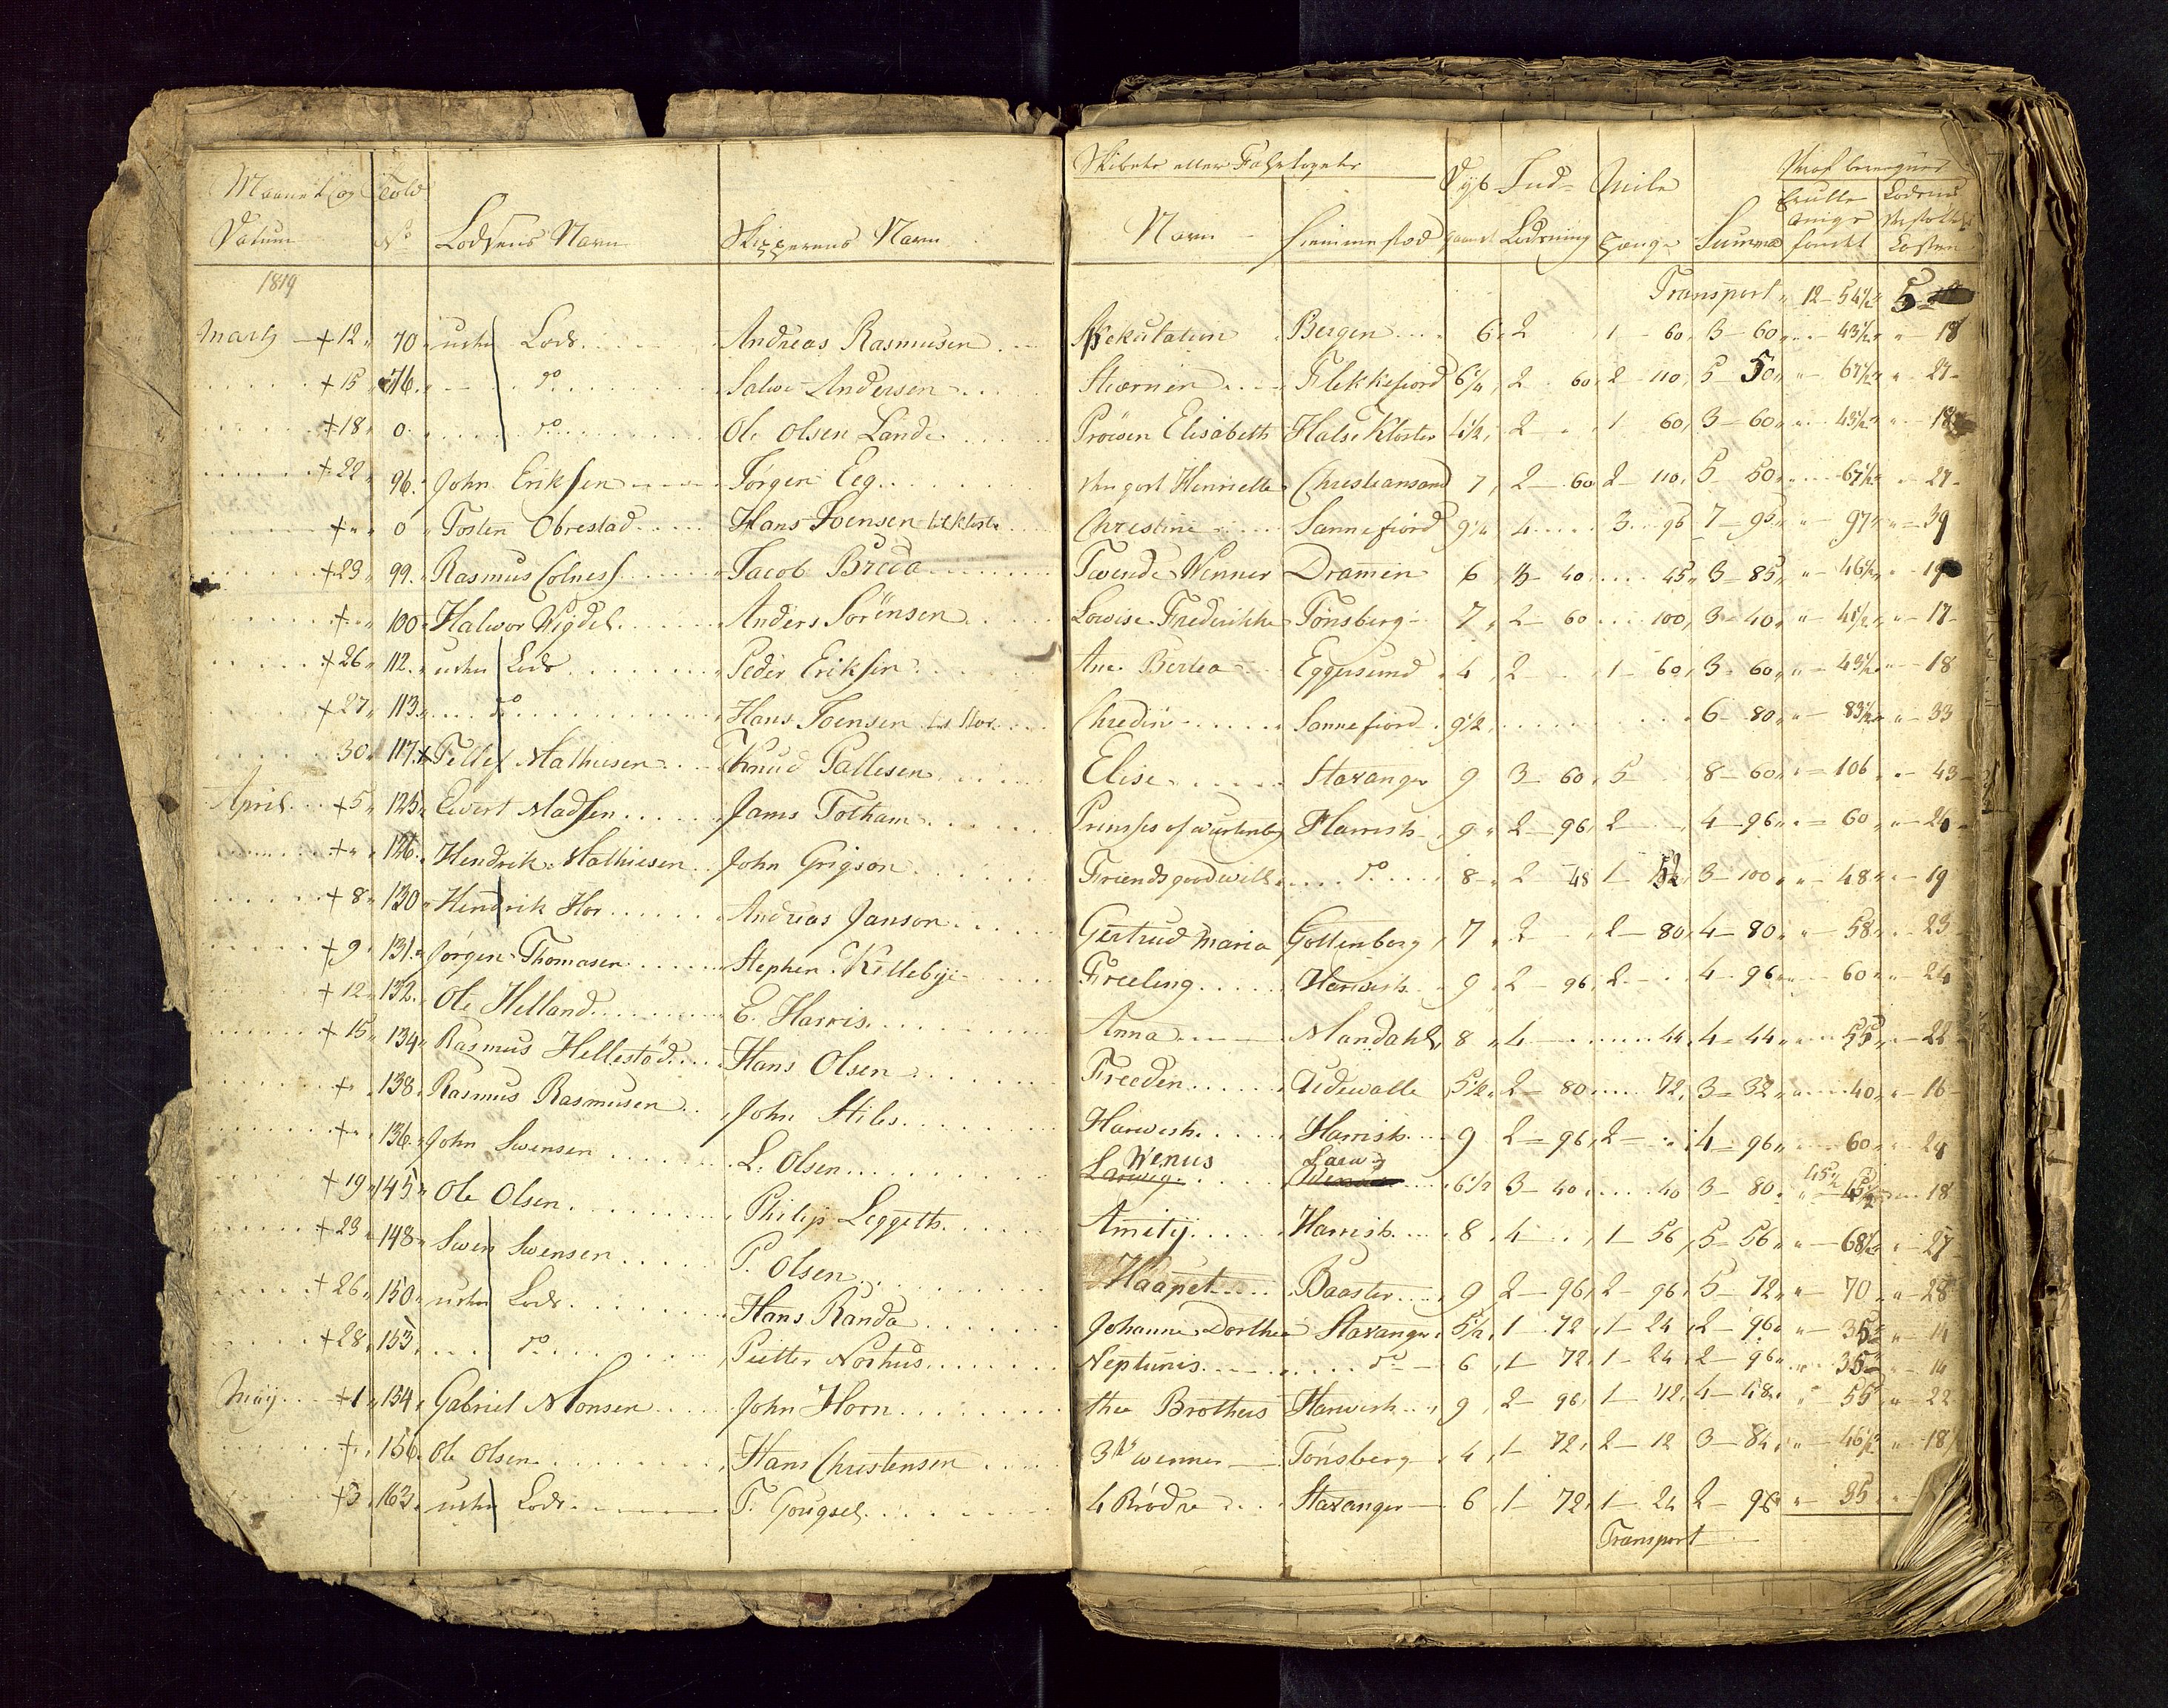 Maanet og Told
Datum No Lodsens Navn Skipperens Navn
1819
Marty + 12 70 Lods Andreas Rasmusen
+ 15 76 do Salve Andersen
+ 18 0 do Ole Olsen Lande
+ 22 96 John Eriksen Jørgen Eeg
+ " 0 Tosten Obrestad Hans Joensen
+ 23 99 Rasmus Colness Jacob Breda
+ " 100 Halvor Wigdel Anders Sörensen
+ 26 112 Lods Peder Eriksen
+ 27 113 do Hans Joensen
30 117 Tellef Mathiesen Knud Pallesen
April + 5 125 Evert Madsen Jams Totham
+ " 126 Hendrik Mathiesen John Grigson
+ 8 130 Hendrik Hor Andreas Janson
+ 9 131 Jørgen Thomasen Stephen Killebye
+ 12 132 Ole Helland E. Harris
+ 15 134 Rasmus Hellestöd Hans Olsen
+ " 138 Rasmus Rasmusen John Stiles
+ " 136 John Swensen L. Olsen
+ 19 145 Ole Olsen Philip Leggett
+ 23 148 Swen Swensen P. Olsen
+ 26 150 Lods Hans Randa
+ 28 153 do Pietter Norhus
Maij + 1 154 Gabriel Monsen John Horn
+ " 156 Ole Olsen Hans Christensen
+ 3 163 Lods T. Gougsel
Skibets eller Fartøyets Dyb Ind- Mile
Navn Hiemmestad Lodsning Penge Summa
Transport 12 - 54 1/2 5
Spekulation Bergen 6 2 1 - 60 3 - 60 43 1/2 18
Stiernen Flekkefiord 6 1/4 2 60 2 - 110 5 50 67 1/2 27
Pröven Elisabeth Halse Kloster 4 1/2 2 1 60 3 - 60 43 1/2 18
Henriette Christiansand 7 2 - 60 2 - 110 5 50 67 1/2 27
Christine Sannefiord 9 1/2 4 3 96 7 - 96 97 39
Twende Wenner Dramen 6 3 - 40 45 3 - 85 46 1/2 19
Lowise Frederikke Tönsberg 7 2 - 60 100 3 - 40 41 1/2 17
Ane Bertea Eggersund 4 2 1 - 60 3 - 60 43 1/2 18
Sannefiord 9 1/2 6 - 80 83 1/2 33
Elise Stavanger 9 3 - 60 5 8 - 60 106 43
Prinsses of Wurtenbg Harrish 9 2 - 96 2 4 - 96 60 24
Friends goodwill do 8 2 48 1 - 52 3 - 100 48 19
Gertrud Maria Gottenborg 7 2 2 - 80 4 - 80 58 23
Freeling Harwish 9 2 - 96 2 4 - 96 60 24
Anna Mandahl 8 4 44 4 - 44 55 22
Freeden Udewalle 5 1/2 2 - 80 72 3 - 32 40 16
Harwish Harrish 9 2 - 96 2 4 - 96 60 24
Wenus Larw
Larwig 6 1/2 3 - 40 40 3 - 80 45 1/2 18
Amitij Harrish 8 4 1 - 56 5 - 56 68 1/2 27
Haapet Baaster 9 2 - 96 2 - 96 5 - 72 70 28
Johanne Dorthea Stavanger 5 1/2 1 - 72 1 - 24 2 - 96 35 14
Neptunis do 6 1 - 72 1 - 24 2 - 96 35 14
the Brothers Harwish 9 2 - 96 1 - 72 4 - 48 55 22
3de wenner Tönsberg 4 1 - 72 2 - 12 3 - 84 46 1/2 18
4 Brödre Stavanger 6 1 - 72 1 - 24 2 - 96 35
Transport